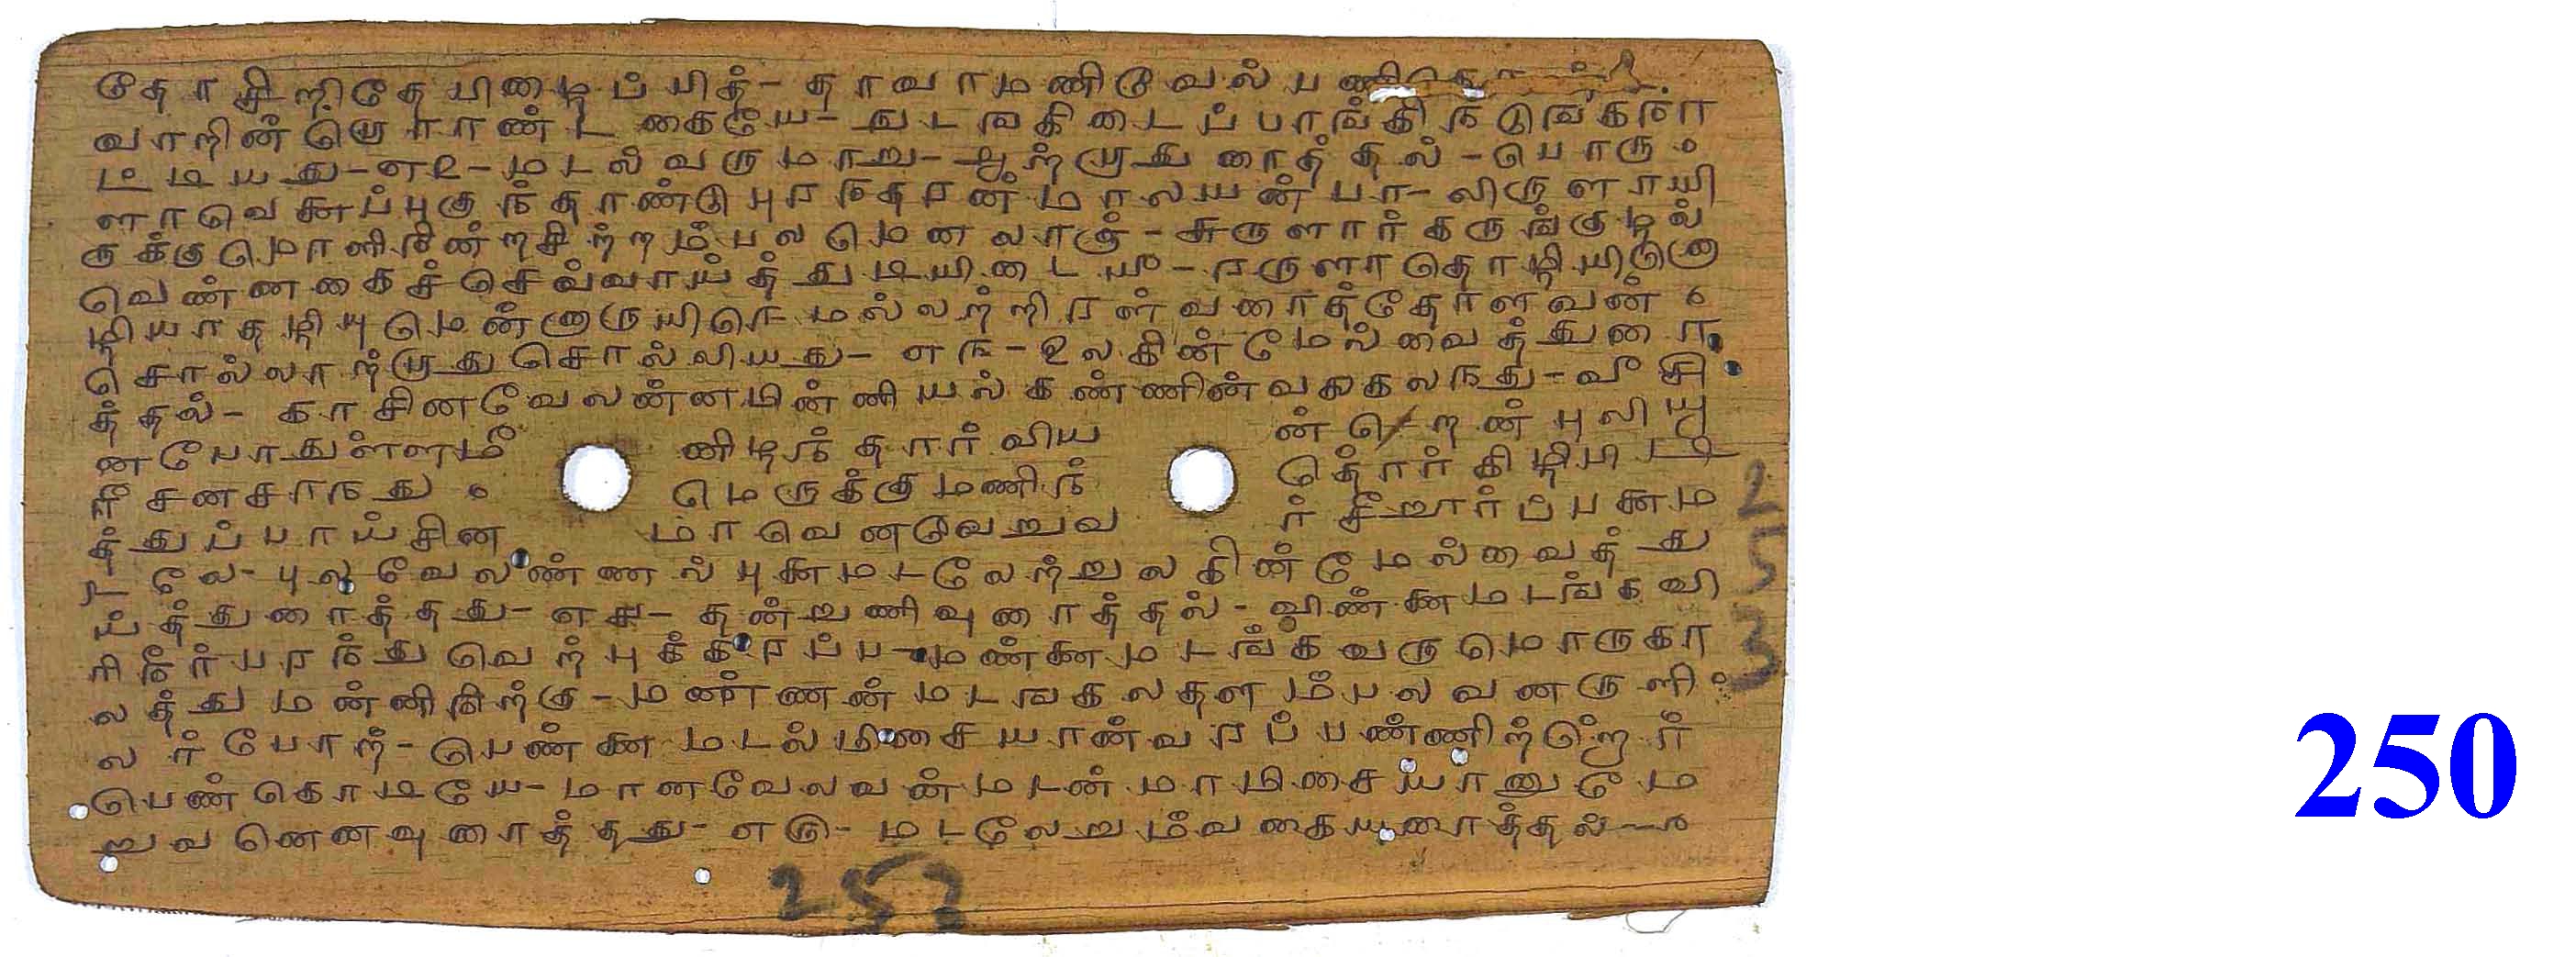 தோ சிறிதே யிடைப்பித்- தாவாமணிவேல் பணிகொ
வாறின்றொாண்டகையே- நடஙகிடைப்பாங்கி நடுங்கநா
ட்டியது-௭௨-மடல் வருமாறு-ஆற்றாதுரைத்தல்-பொரு
ளாவெனப்புகுந்தாண்டு புரநதரன்மாலயன் பா-லிருளாயி
ருக்குமொளிநின்றசிற்றம்பலமெனலாகு-சுருளார்கருங்குழல்
வெண்ணகைச்செவ்வாய்த்துடியிடையீ-ரருளாதொழியிலொ
ழியாதழியுமென்னாருயிரெ-மல்லற்றிரள்வரைத்தோளவன்
சொல்லாற்றாதுசொல்லியது-௭௩-உலகின்மேல்வைத்துரை
த்தல்-காசினவேலன்னமின்னியல்கண்ணின்வலைகலநது-வீசி
னபோதுள்ளமீ னிழந்தார் விய ன்றென் புலியூ
ரீசனசாநது மெருக்கு மணிந் தோர் கிழிபிடி
த்துப்பாய்சின மாவெனவேறுவ ர் சீறூர்ப்பனைம
டலே-புலவேலண்ணல்புனைமடலேற்றுலகின்மேல்வைத்து
ய்த்துரைத்தது-௭௪-தன்றுணிவுரைத்தல்-விண்ணைமடங்கவி
ரிநீர்பரந்துவெற்புக்கரப்ப-மண்ணைமடங்கவருமொருகா
லத்து மன்னிநிற்கு-மண்ணன்மடஙகலதளம்பலவனருளி
லர்போற்-பெண்ணைமடல்மிசையான்வரப்பண்ணிற்றோர்
பெண்கொடியே-மானவேலவன்மடன்மாமிசையானுமே
றுவனெனவுரைத்தது-௭௫-மடலேறும்வகையுரைத்தல்-
253
253
250